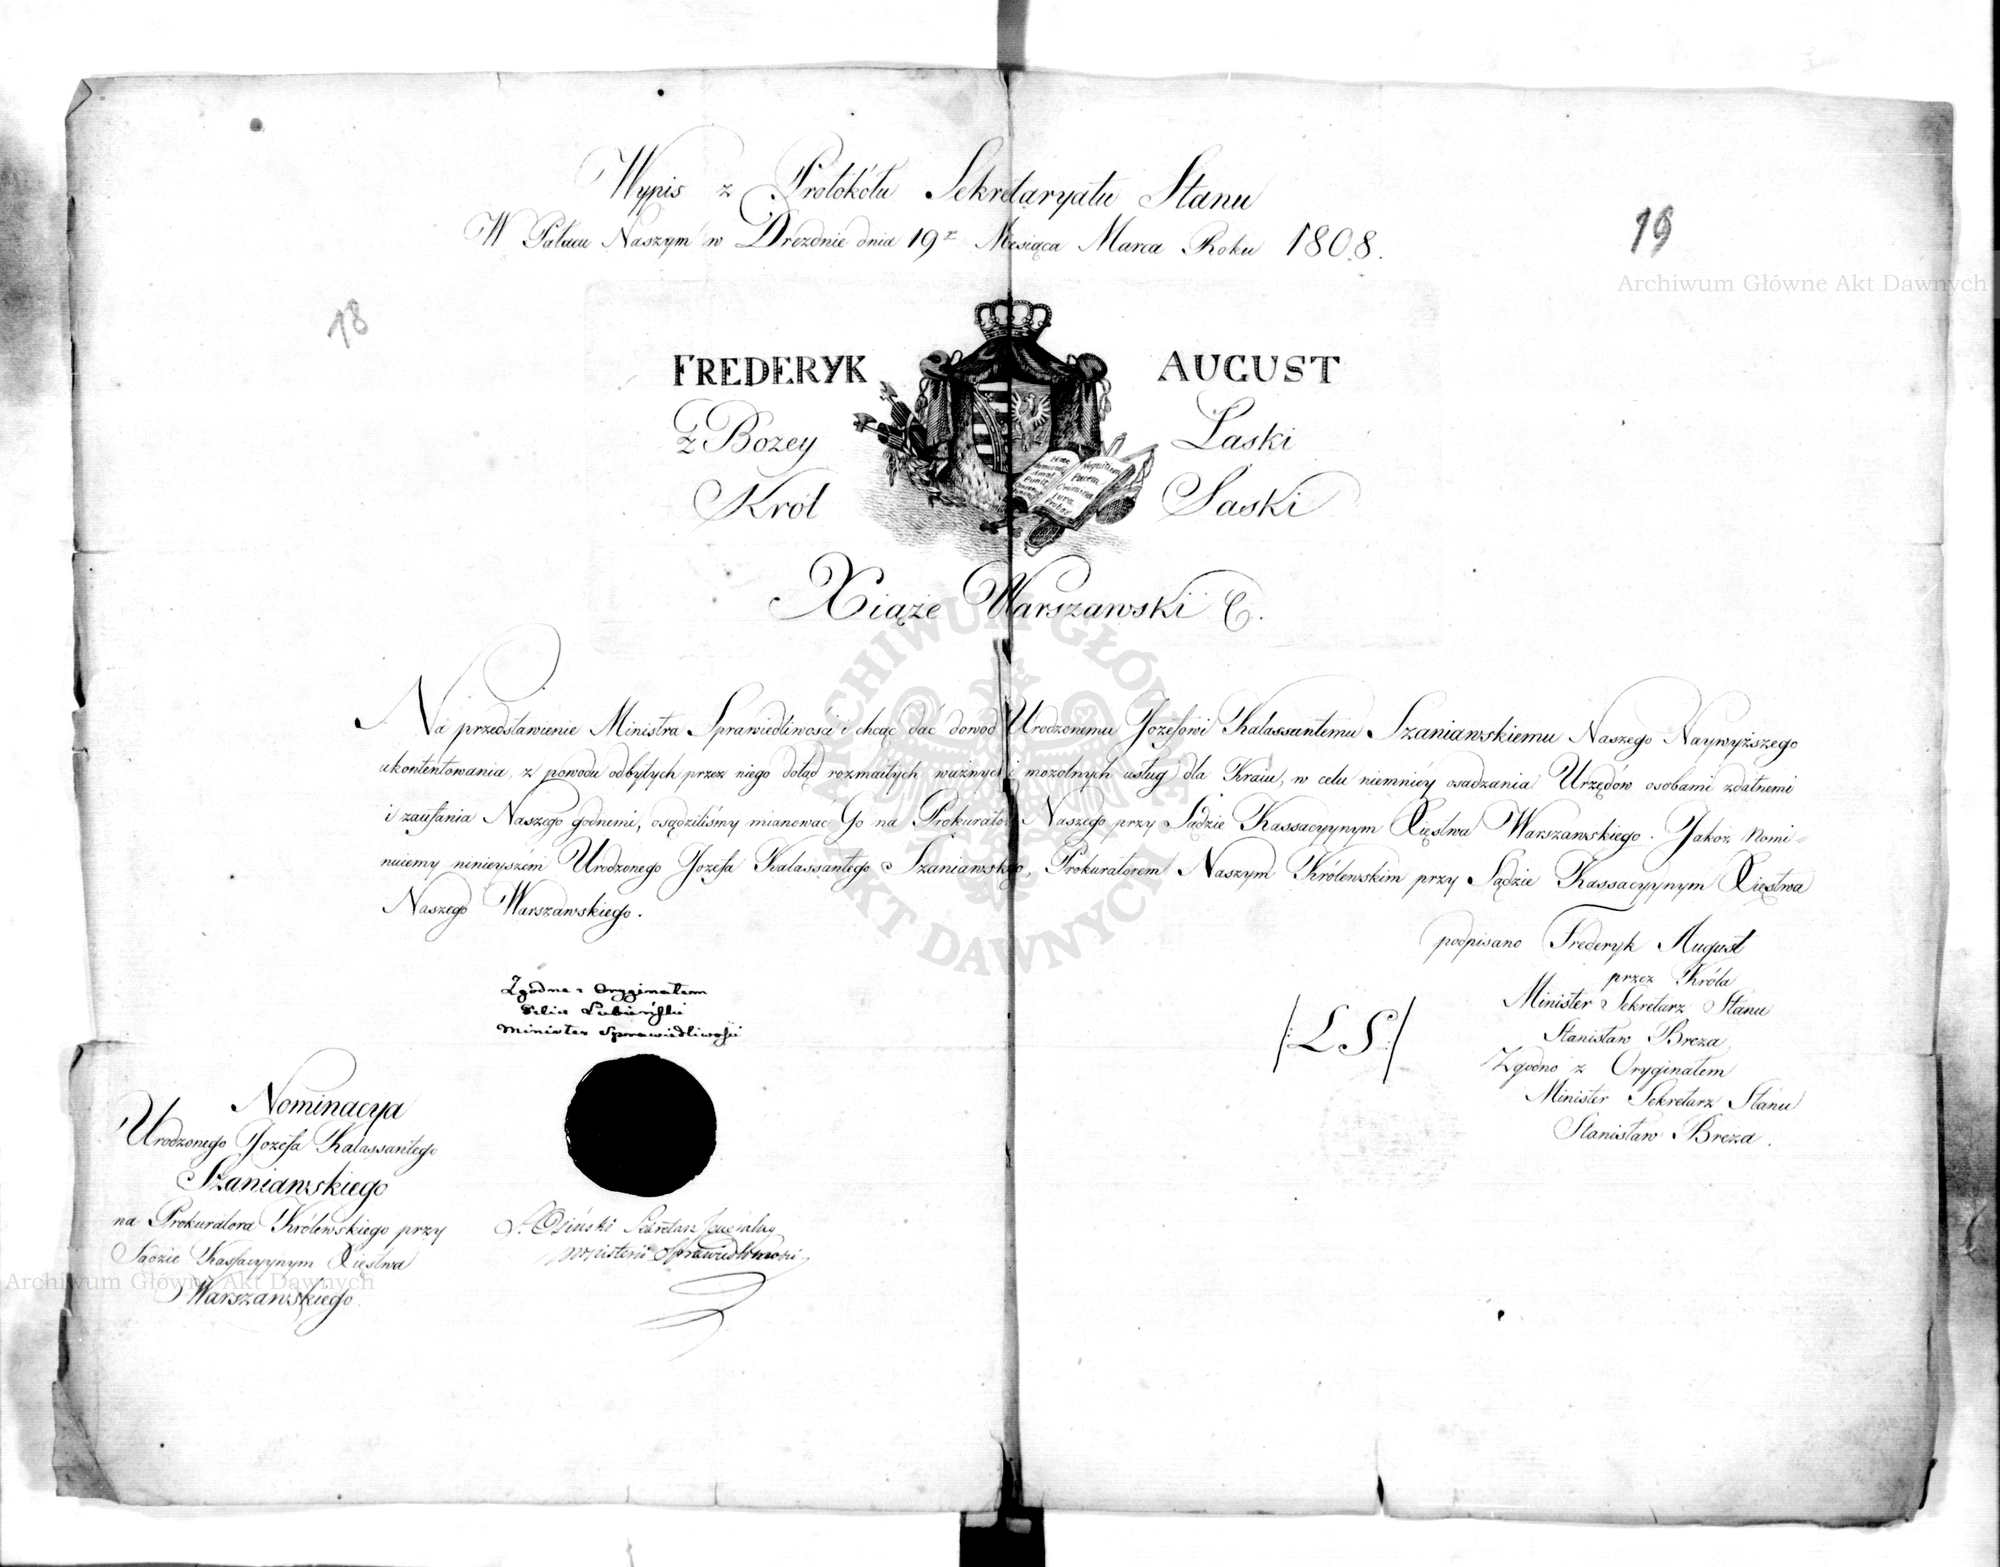 Wypis z Protokółu Sekretaryatu Stanu
W Pałacu Naszym w Dreznie dnia 19go Miesiąca Marca Roku 1808.
19
18
FREDERYK AUGUST
z Bozey Łaski
Król Saski
Xiąże Warszawski &.
Na przedstawienie Ministra Sprawiedliwości i chcąc dać dowod Urodzonemu Jozefowi Kalassantemu Szaniawskiemu Naszego Naywyższego
ukontentowania, z powodu odbytych przez niego dotąd rozmaitych ważnych i mozolnych usług dla Kraiu, w celu niemniéy osadzania Urzędów osobami zdatnemi
i zaufania Naszego godnemi, osądziliśmy mianować Go na Prokuratora Naszego przy Sądzie Kassacyynym Xięstwa Warszawskiego. Jakoż nomi=
nuiemy ninieyszém Urodzonego Jozefa Kalassantego Szaniawskiego, Prokuratorem Naszym Królewskim przy Sądzie Kassacyynym Xięstwa
Naszego Warszawskiego.
podpisano Frederyk August
przez Króla
Minister Sekretarz Stanu
Stanisław Breza
Zgodno z Oryginałem
Minister Sekretarz Stanu
Stanisław Breza.
/: L S :/
Zgodne z Oryginałem
Felix Lubieński
Minister Sprawiedliwości
Nominacya
Urodzonego Jozefa Kalassantego
Szaniawskiego
na Prokuratora Królewskiego przy
Sądzie Kassacyynym Xięstwa
Warszawskiego.
Osiński Sekretarz Jeneralny
Ministerii Sprawiedliwości
Archiwum Główne Akt Dawnych
ARCHIWUM GŁÓWNE AKT DAWNYCH
Archiwum Główne Akt Dawnych